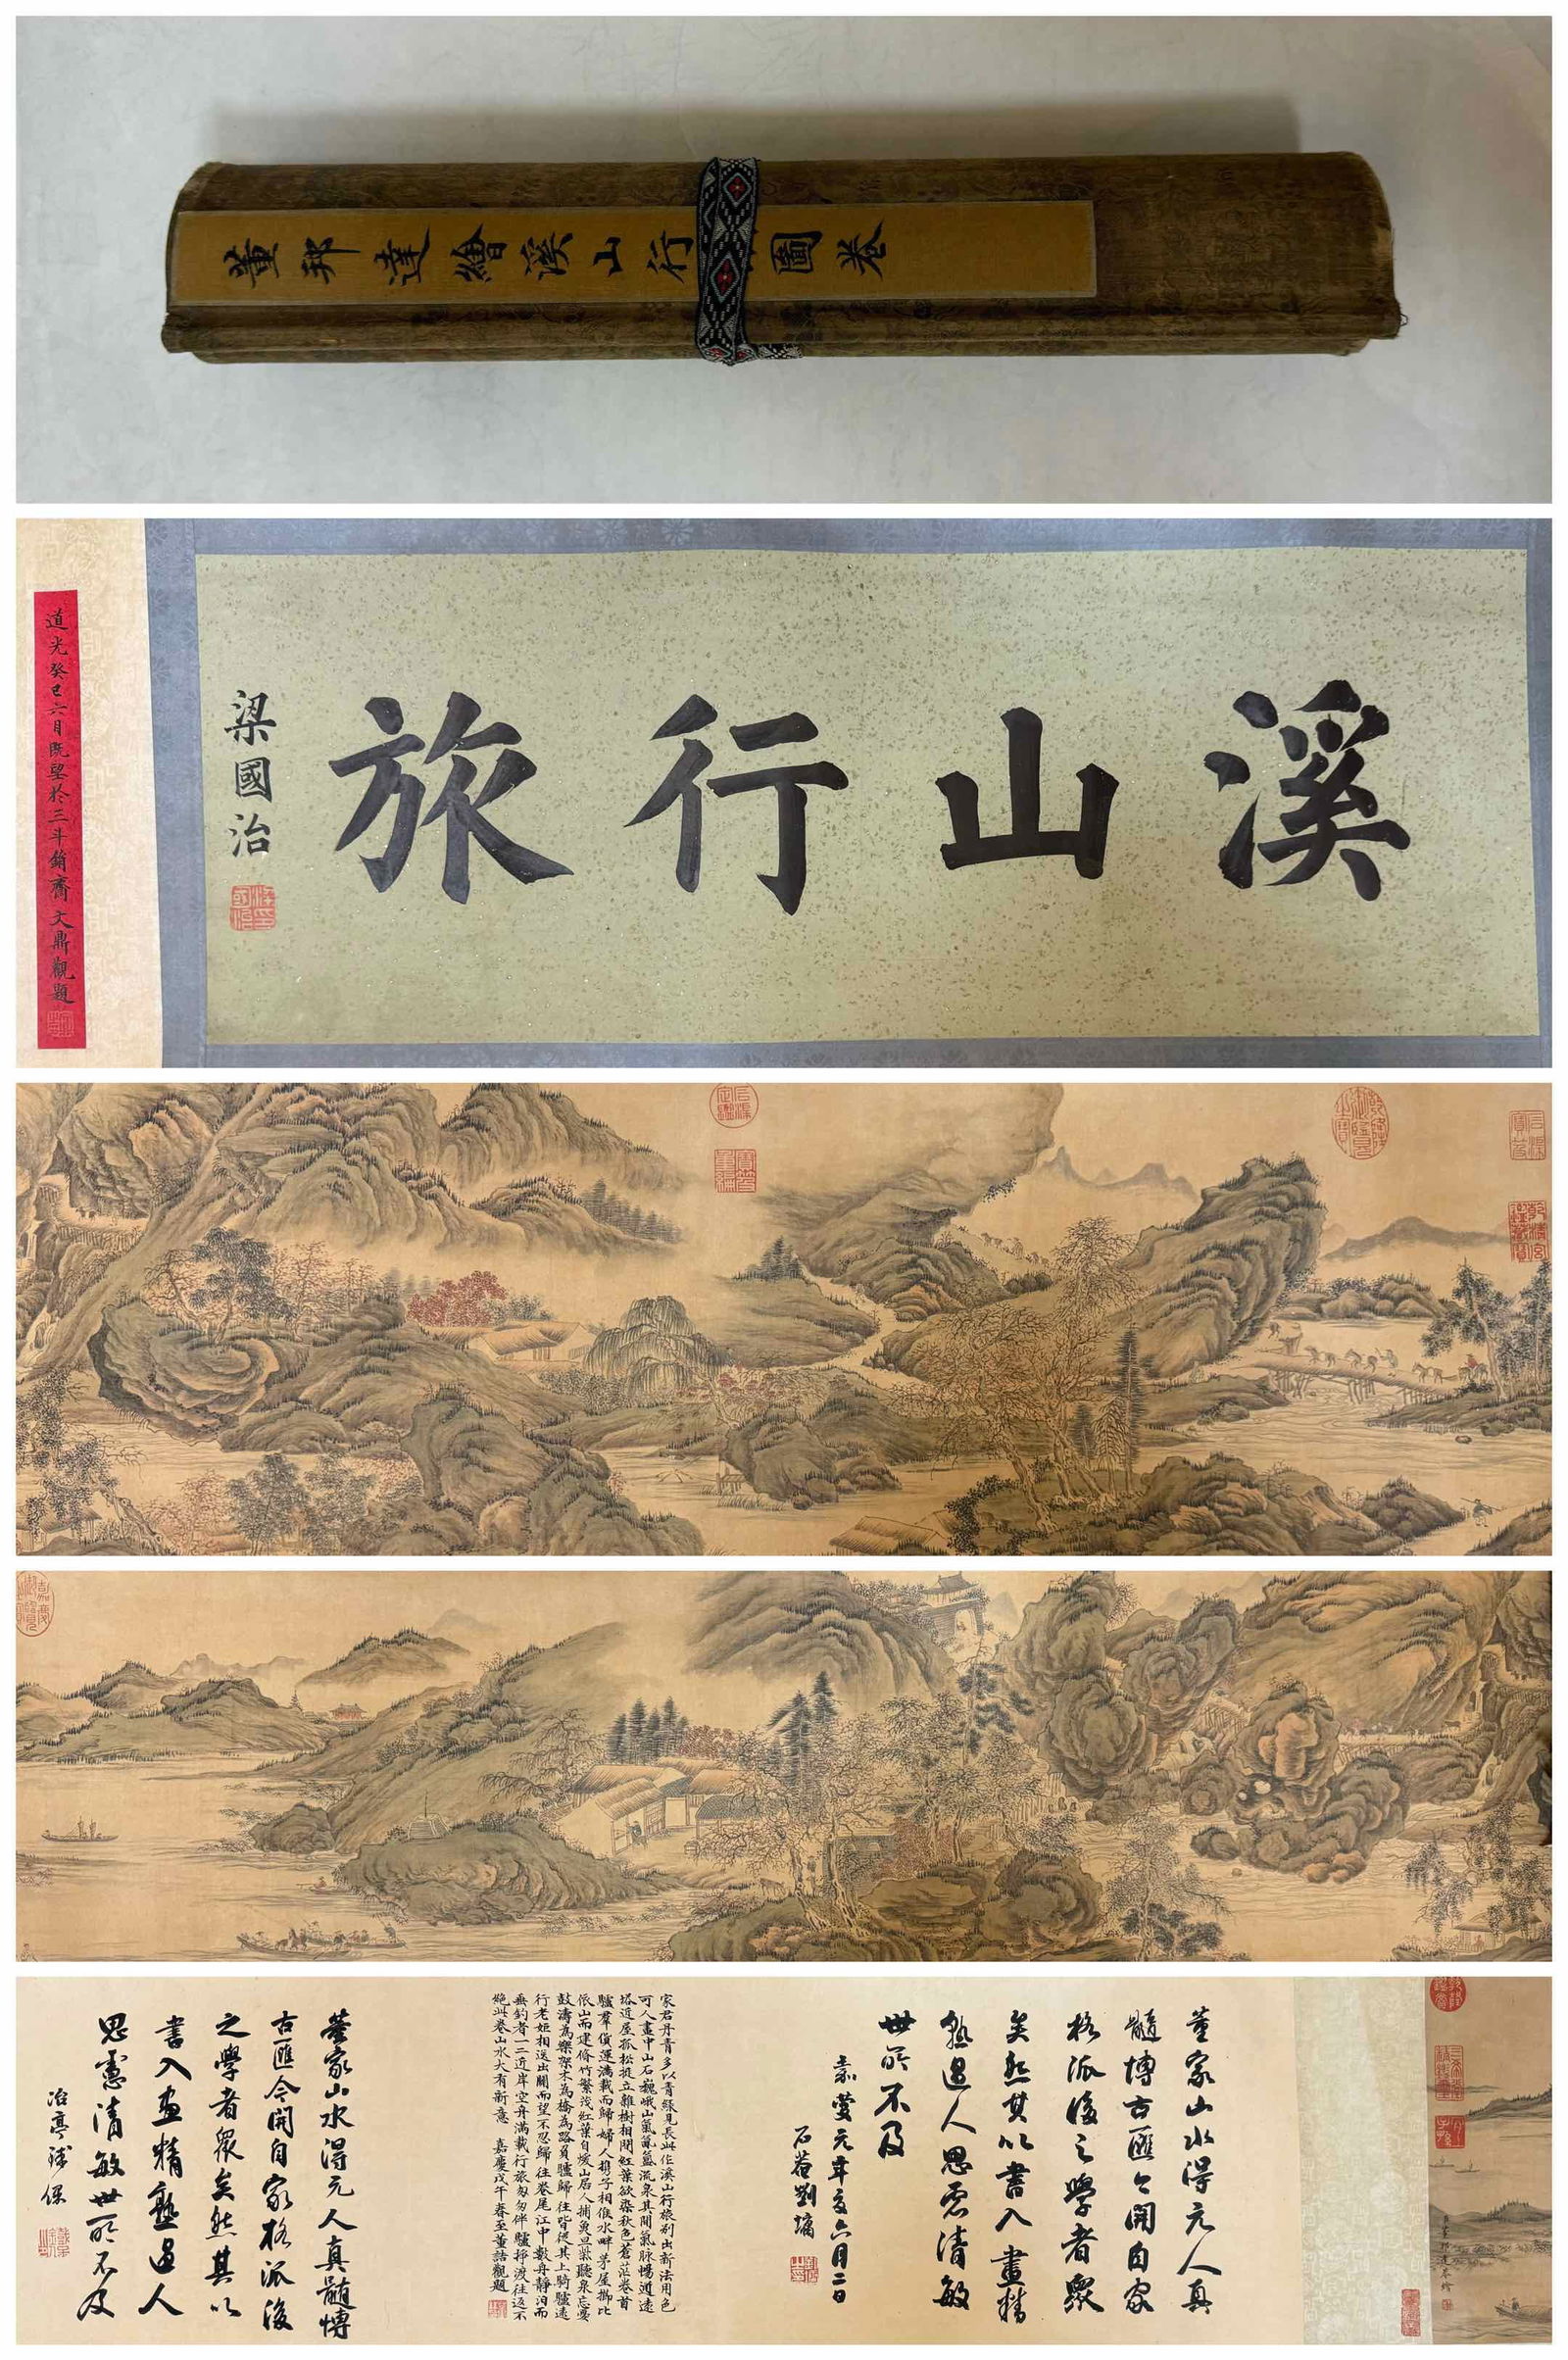 董邦達繪溪山行圖卷
溪山行旅
梁國治
道光癸巳六月既望於三斗銷齋文鼎觀題
乾隆御覽之寶
石渠寶笈
乾清宮鑒藏寶
石渠定鑑
寶笈重編
嘉慶御覽之寶
臣董邦達恭繪
董家山水得元人真
髓博古匯今開自家
格派後之學者眾
矣然其以書入畫精
熟過人思慮清敏
世所不及
嘉慶元年夏六月二日
石菴劉墉
家君丹青多以青綠見長此作溪山行旅別出新法用色
可人畫中山石巍峨山氣氤氳流泉其間氣脉暢通遠
塔近屋孤松挺立雜樹相間紅葉欲染秋色蒼茫卷首
驢羣貨運滿載而歸婦人携子相候水畔茅屋櫛比
依山而建脩竹繁茂紅葉自媛山居人捕魚旦柴聽泉忘憂
鼓濤為樂架木為橋為路負驢歸往皆從其上騎驢遠
行老姬相送出關而望不忍歸往卷尾江中數舟靜泊而
垂釣者一二近岸空舟滿載行旅匆匆伴驢擺渡往返不
絕此卷山水大有新意 嘉慶戊午春至董誥觀題
董家山水得元人真髓博
古匯今開自家格派後
之學者眾矣然其以
書入畫精熟過人
思慮清敏世所不及
冶亭鐵保